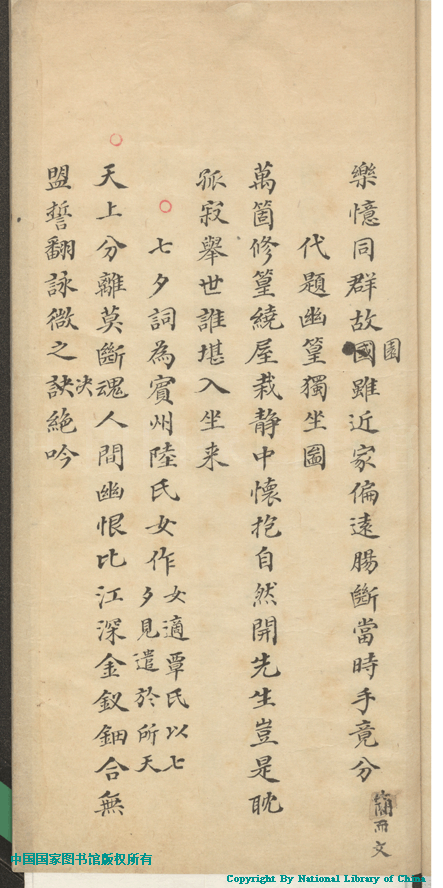 樂憶同群故國雖近家偏遠腸斷當時手竟分
園
代題幽篁獨坐圖
萬箇修篁繞屋栽静中懷抱自然開先生豈是耽
孤寂舉世誰堪入坐来
七夕詞為賓州陸氏女作
女適覃氏以七
夕見遣於所天
天上分離莫斷魂人間幽恨比江深金釵鈿合無
盟誓翻詠微之訣絶吟
决
文
中国国家图书馆版权所有
Copyright By National Library of China